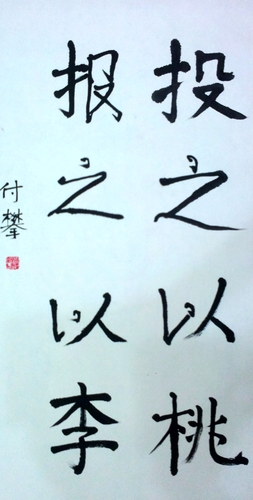 投之以桃
报之以李
付攀